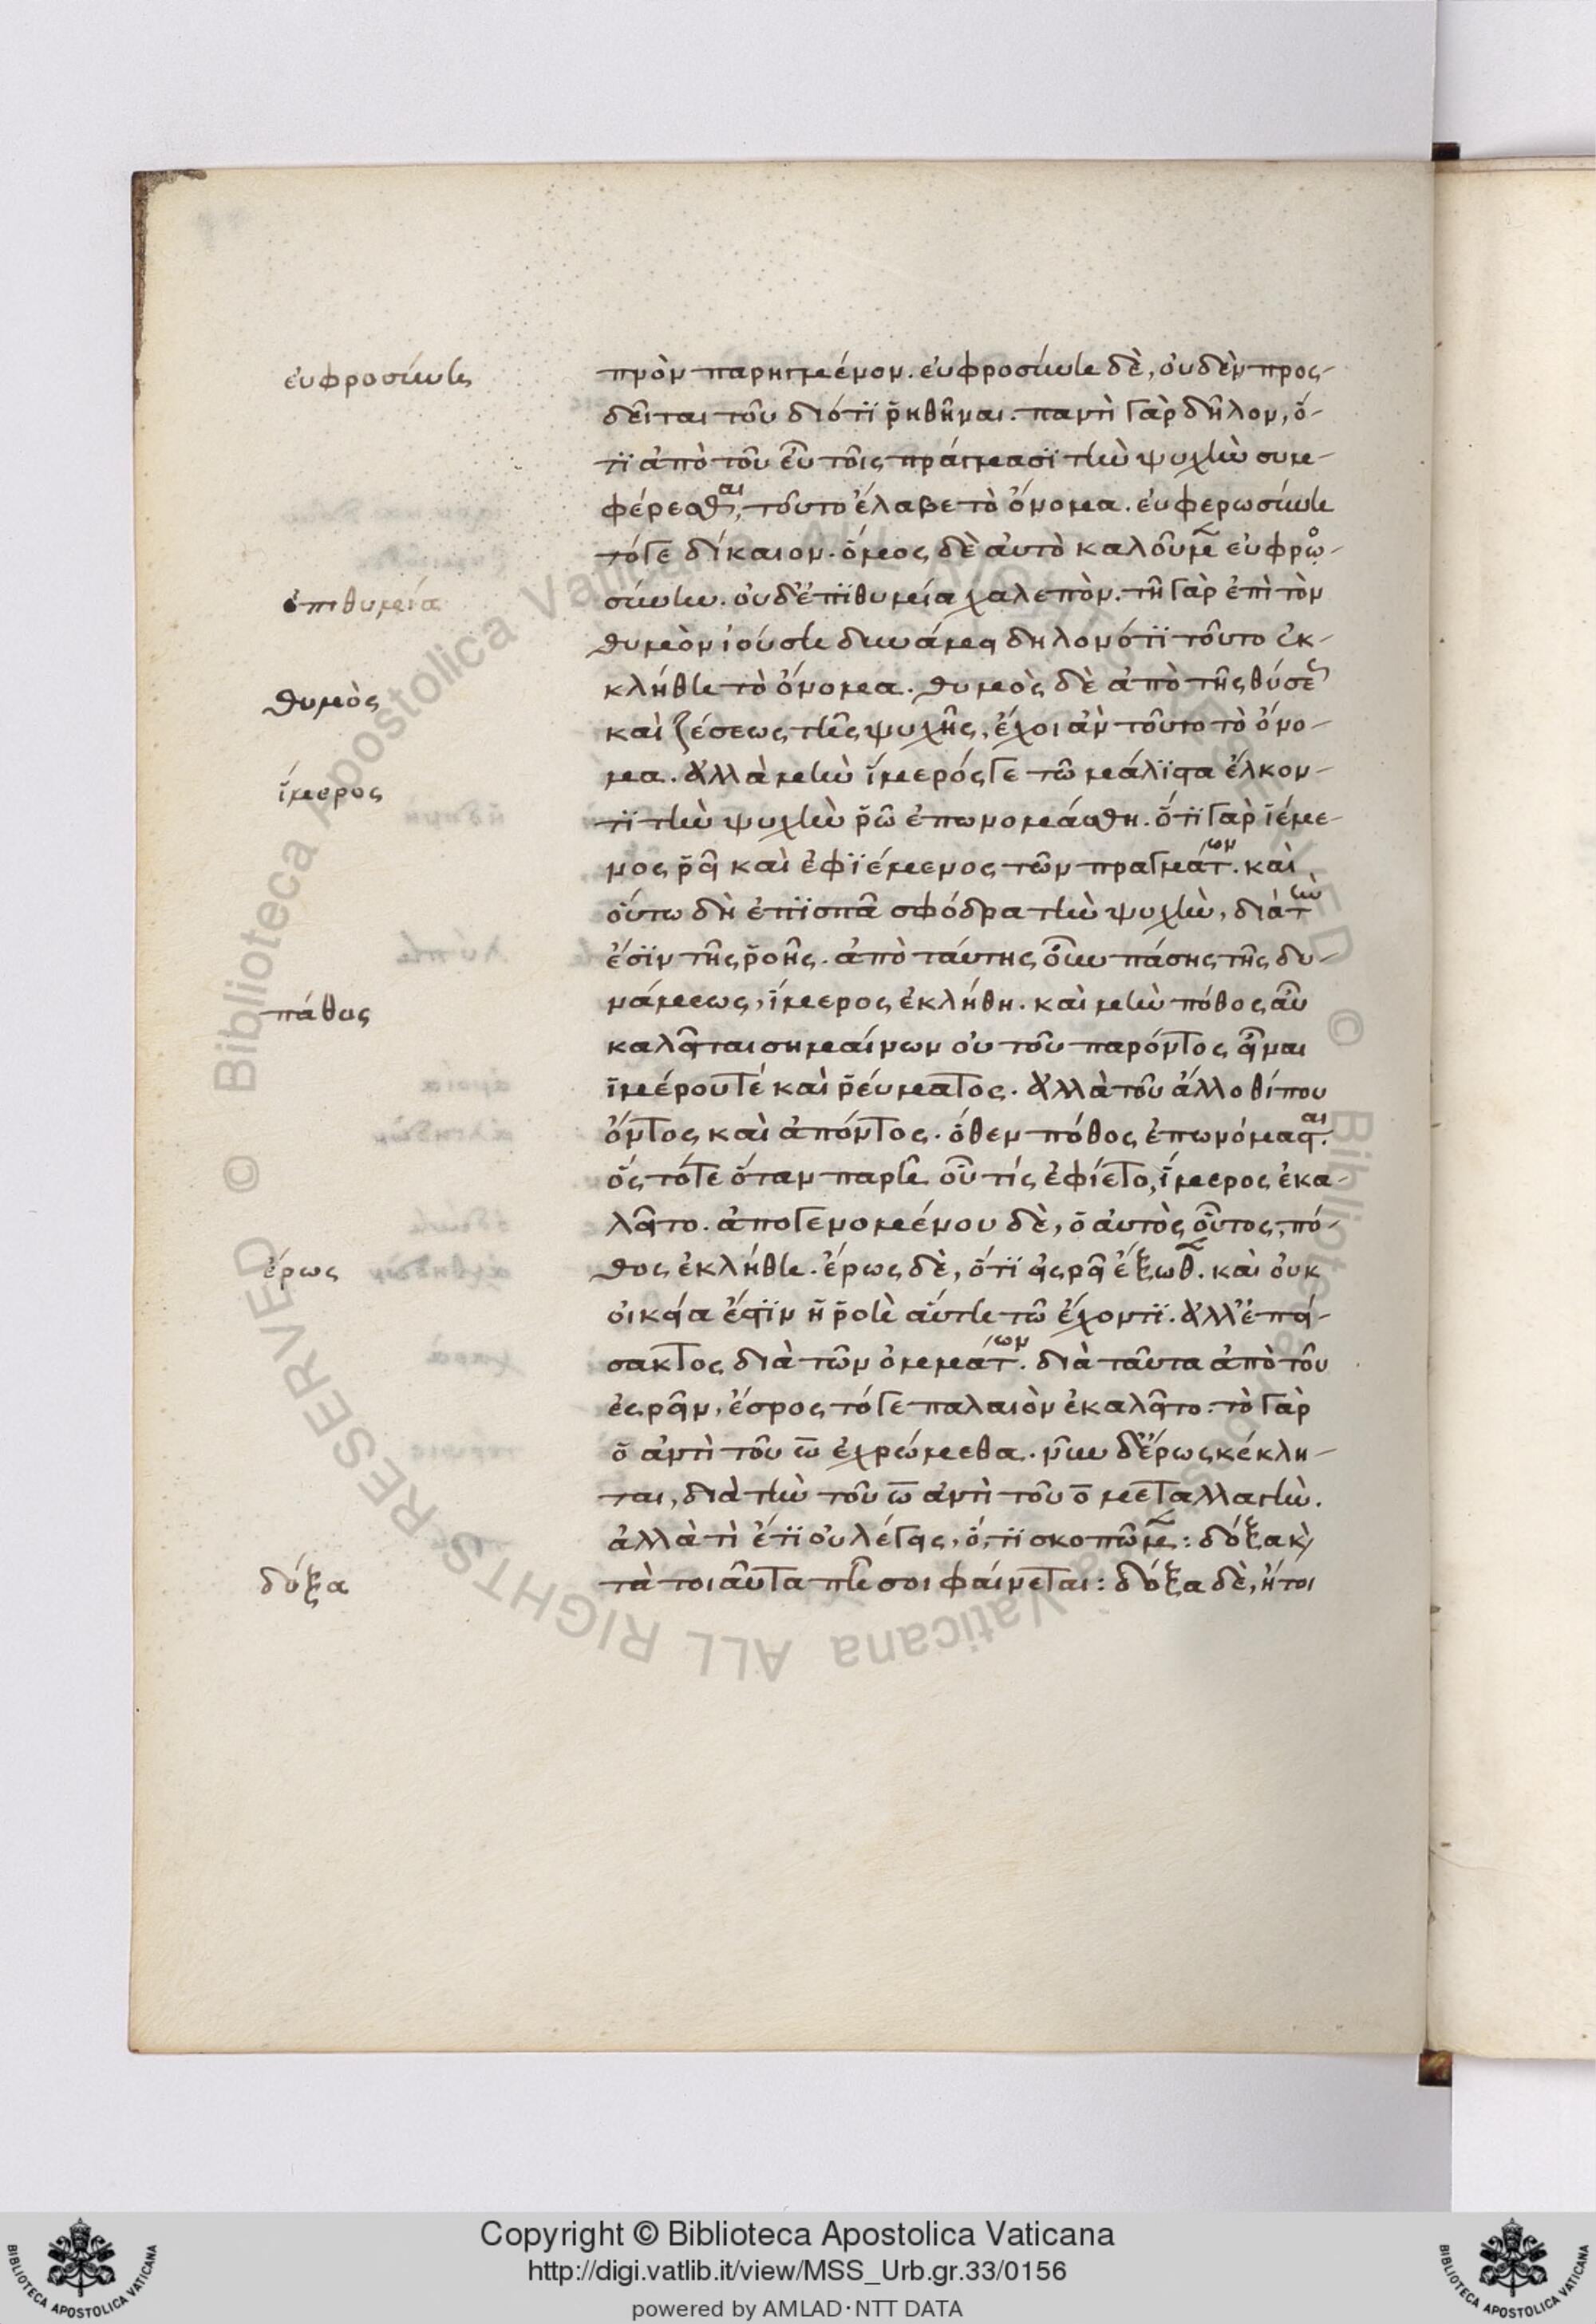 εὐφροσύνης
πρὸν παρηγμένον. εὐφροσύνη δὲ, οὐδὲν προς-
δεῖται τοῦ διότϊ ῥηθῆναι. παντὶ γὰρ δῆλον, ὅ-
τϊ ἀπὸ τοῦ εὖ τοῖς πράγμασϊ τὴν ψυχὴν συμ-
φέρεσθαι, τοῦτο ἔλαβε τὸ ὄνομα. εὐφερωσύνη
τόγε δίκαιον. ὅμως δὲ αὐτὸ καλοῦμεν εὐφρο-
ἐπιθυμία
σύνην. οὐδ' ἐπϊθυμία χαλεπόν. τῆ γὰρ ἐπὶ τὸν
θυμὸν ἰούση δυνάμει δηλονότϊ τοῦτο ἐκ-
θυμὸς
κλήθη τὸ ὄνομα. θυμὸς δὲ ἀπὸ τῆς θύσεως
καὶ ζέσεως τῆς ψυχῆς, ἔχοι ἂν τοῦτο τὸ ὄνο-
ἵμερος
μα. ἀλλὰ μὴν ἵμερός γε τῶ μάλϊστα ἕλκον-
τϊ τὴν ψυχὴν ῥῶ ἐπωνομάσθη. ὅτϊ γὰρ ἱέμε-
νος ῥεῖ καὶ ἐφϊέμενος τῶν πραγμάτων. καὶ
οὕτω δὴ ἐπϊσπᾶ σφόδρα τὴν ψυχὴν, διὰ τὴν
ἕσϊν τῆς ῥοῆς. ἀπὸ ταύτης οὖν πάσης τῆς δυ-
πάθος
νάμεως, ἵμερος ἐκλήθη. καὶ μὴν πόθος αὖ
καλεῖται σημαίνων οὐ τοῦ παρόντος εἶναι
ἱμέρου τέ καὶ ῥεύματος. ἀλλὰ τοῦ ἄλλοθί που
ὄντος καὶ ἀπόντος. ὅθεν πόθος ἐπωνόμασται.
ὅς τότε ὅταν παρῆ οὗ τίς ἐφίετο, ἵμερος ἐκα-
λεῖτο. ἀπογενομένου δὲ, ὁ αὐτὸς οὗτος, πό-
ἔρως
θος ἐκλήθη. ἔρως δὲ, ὅτϊ εἰςρεῖ ἔξωθεν. καὶ οὐκ
οἰκεία ἐστϊν ἡ ῥοὴ αὕτη τῶ ἔχοντϊ. ἀλλ' ἐπεί-
σακτος διὰ τῶν ὀμμάτων. διὰ ταῦτα ἀπὸ τοῦ
ἐςρεῖν, ἔσρος τό γε παλαιὸν ἐκαλεῖτο. τὸ γὰρ
ο ἀντὶ τοῦ ω ἐχρώμεθα. νῦν δ' ἔρως κέκλη-
ται, διὰ τὴν τοῦ ω ἀντὶ τοῦ ο μεταλλαγήν.
ἀλλὰ τὶ ἔτϊ οὐ λέγεις, ὅ, τϊ σκοπῶμεν: δόξα κὶ
δόξα
τὰ τοιαῦτα πῆ σοι φαίνεται: δόξα δὲ, ἤτοι
Copyright © Biblioteca Apostolica Vaticana
http://digi.vatlib.it/view/MSS_Urb.gr.33/0156
powered by AMLAD·NTT DATA
© Biblioteca Apostolica Vaticana ALL RIGHTS RESERVED
BIBLIOTECA APOSTOLICA VATICANA
BIBLIOTECA APOSTOLICA VATICANA